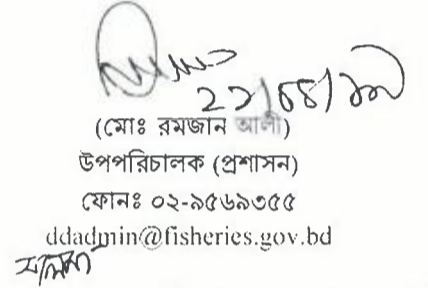 (মোঃ রমজান আলী)
উপপরিচালক (প্রশাসন)
ফোনঃ ০২-৯৫৬৯৩৫৫
ddadmin@fisheries.gov.bd